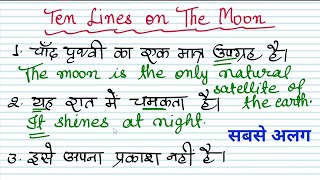 Ten Lines on The Moon
1. चाँद पृथ्वी का एक मात्र उपग्रह है।
The moon is the only natural
satellite of the earth.
2. यह रात में चमकता है।
It shines at night.
सबसे अलग
3. इसे अपना प्रकाश नहीं है।